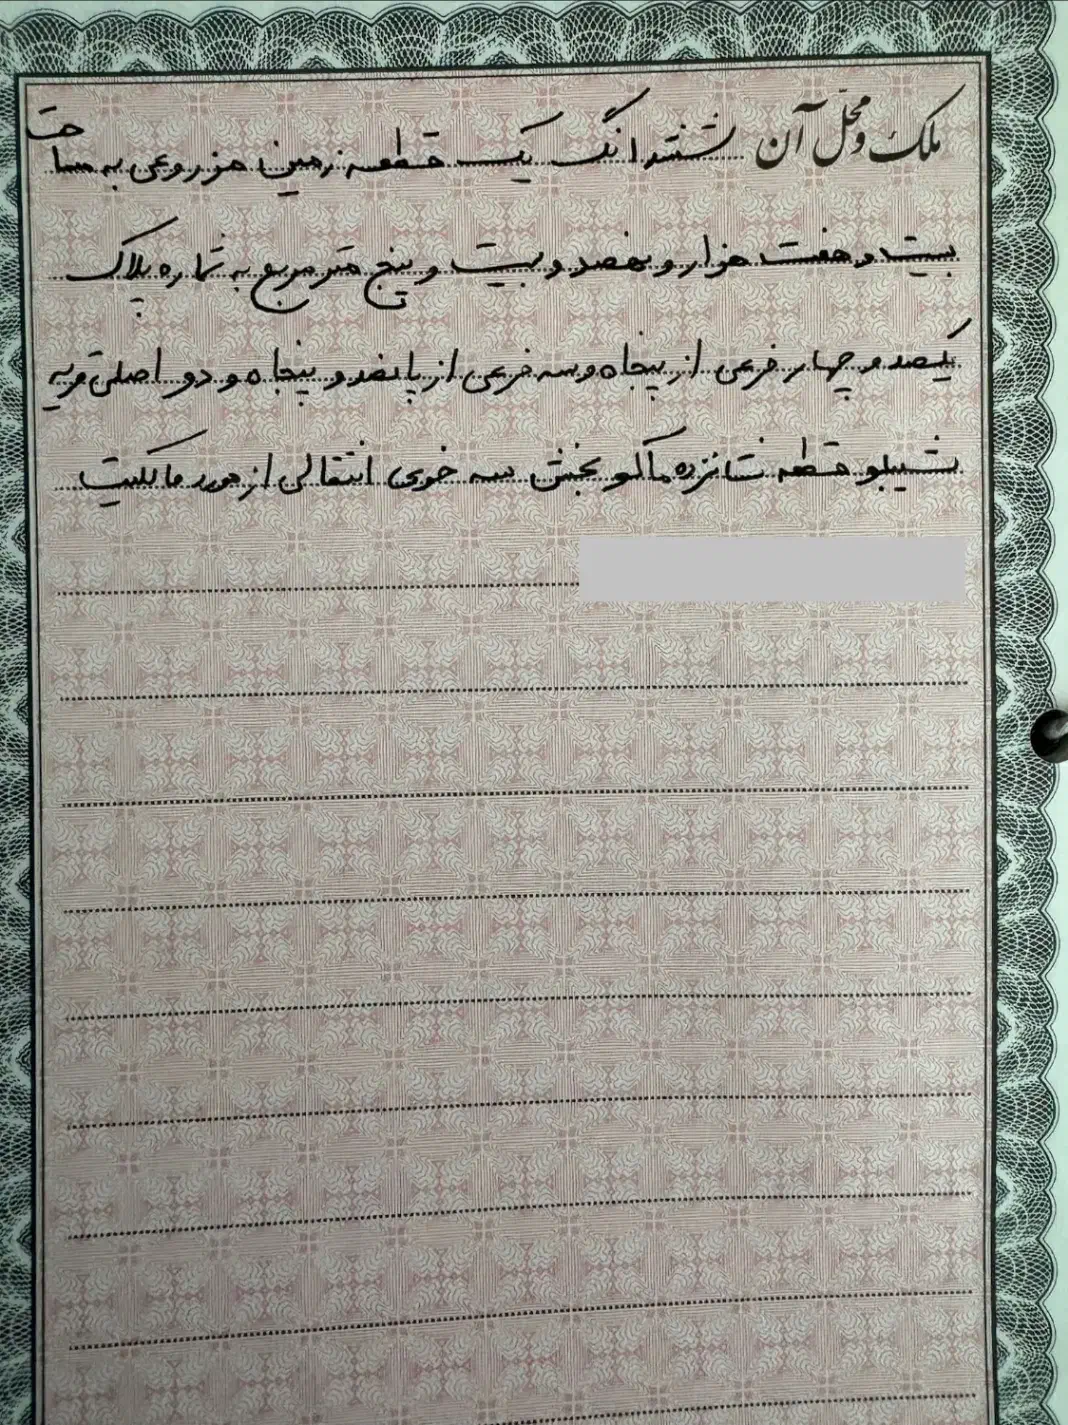 ملک و محلّ آن ششدانگ یک قطعه زمین مزروعی به مساحت
بیست و هفت هزار و نهصد و بیست و پنج متر مربع به شماره پلاک
یکصد و چهار فرعی از پنجاه و سه فرعی از پانصد و پنجاه و دو اصلی قریه
شیبلو قطعه شانزده ماکو بخش سه خوی انتقالی از مورد مالکیت